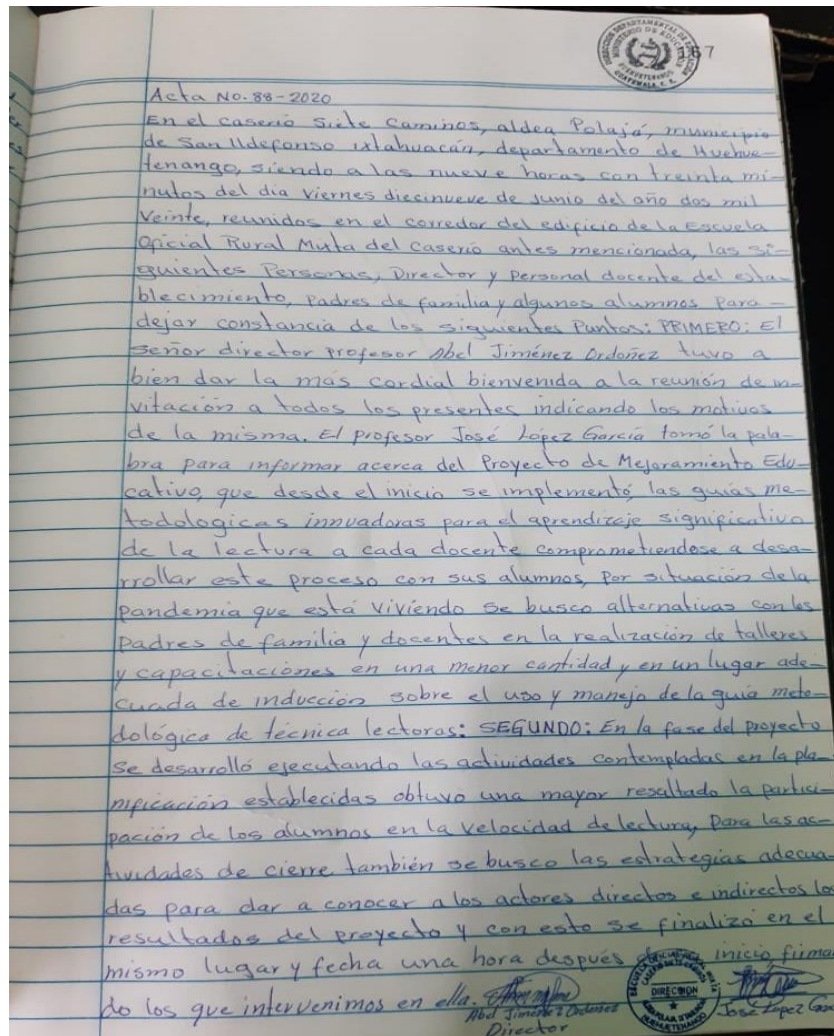 DIRECCION DEPARTAMENTAL DE EDUCACIÓN
MINISTERIO DE EDUCACION
HUEHUETENANGO
GUATEMALA, C. A.
167
Acta No. 88-2020
En el caserío Siete Caminos, aldea Polajá, municipio
de San Ildefonso Ixtahuacán, departamento de Huehue-
tenango, siendo a las nueve horas con treinta mi-
nutos del día viernes diecinueve de junio del año dos mil
veinte, reunidos en el corredor del edificio de la Escuela
Oficial Rural Mixta del Caserío antes mencionada, las si-
guientes Personas, Director y personal docente del esta-
blecimiento, padres de familia y algunos alumnos para -
dejar constancia de los siguientes Puntos: PRIMERO: El
señor director profesor Abel Jiménez Ordoñez tuvo a
bien dar la más cordial bienvenida a la reunión de in-
vitación a todos los presentes indicando los motivos
de la misma. El profesor José López García tomó la pala-
bra para informar acerca del Proyecto de Mejoramiento Edu-
cativo, que desde el inicio se implementó, las guías me-
todologicas innvadoras para el aprendizaje significativo
de la lectura a cada docente comprometiendose a desa-
rrollar este proceso con sus alumnos, Por situación de la
pandemia que está viviendo se busco alternativas con los
padres de familia y docentes en la realización de talleres
y capacitaciones en una menor cantidad y en un lugar ade-
cuada de inducción sobre el uso y manejo de la guía meto-
dológica de técnica lectoras: SEGUNDO: En la fase del proyecto
se desarrolló ejecutando las actividades contempladas en la pla-
nificación establecidas obtuvo una mayor resultado la partici-
pación de los alumnos en la velocidad de lectura, para las ac-
tividades de cierre también se busco las estrategias adecua-
das para dar a conocer a los actores directos e indirectos los
resultados del proyecto y con esto se finalizó en el
mismo lugar y fecha una hora después inicio, firman-
do los que intervenimos en ella.
Abel Jiménez Ordoñez José López García
Director
DIRECCION
HUEHUETENANGO